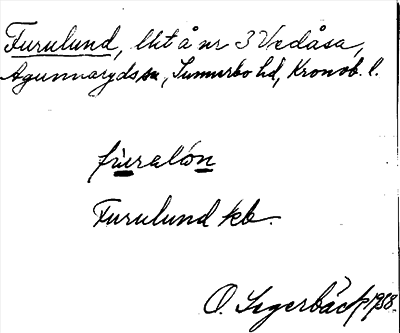 Furulund, lht å nr 3 Vedåsa,
Agunnaryds sn, Sunnerbo hd, Kronob. l.
furalón
Furulund kb.
O. Segerbäck 1938.